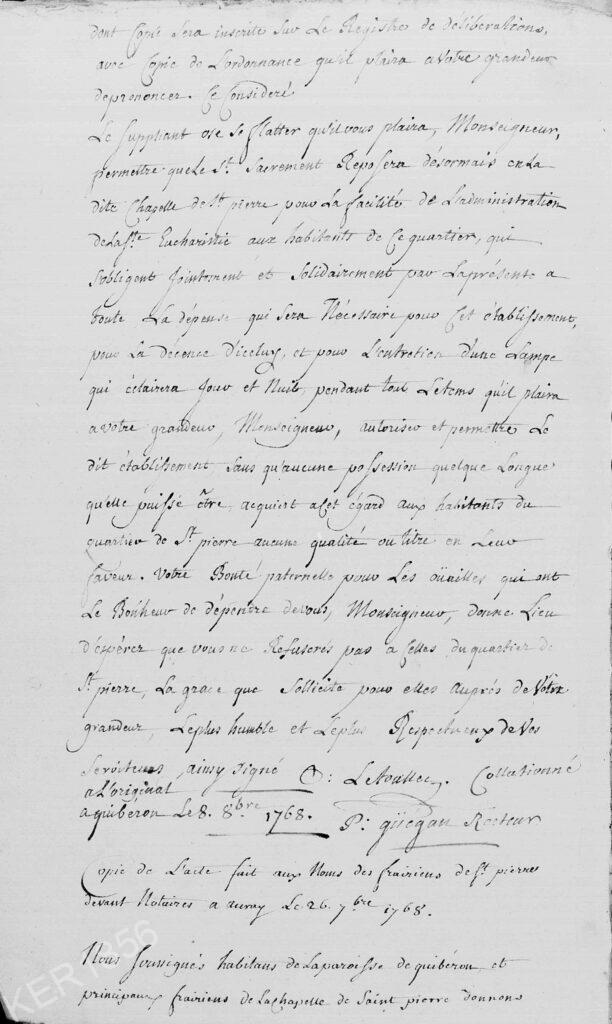 dont Copie sera inscrite sur Le Registre de deliberations,
avec Copie de L'ordonnance qu'il plaira a votre grandeur
de prononcer. Ce Consideré
Le suppliant ose se flatter qu'il vous plaira, Monseigneur,
permettre que Le St. Sacrement Reposera désormais en La
dite Chapelle de St. pierre pour La facilité de L'administration
de La Ste. Eucharistie aux habitants de Ce quartier, qui
s'obligent Jointement et solidairement par La présente a
toute La dépense qui sera Nécessaire pour Cet établissement,
pour La décence d'iceluy, et pour L'entretien d'une Lampe
qui éclairera Jour et Nuit, pendant tout Le tems qu'il plaira
a votre grandeur, Monseigneur, autoriser et permettre Le
dit établissement sans qu'aucune possession quelque Longue
qu'elle puisse être, acquiert a Cet égard aux habitants du
quartier de St. pierre aucune qualité ou titre en Leur
faveur. Votre Bonté paternelle pour Les oüailles qui ont
Le Bonheur de dépendre de vous, Monseigneur, donne Lieu
d'espérer que vous ne Refuserés pas a Celles du quartier de
St. pierre, La grace que sollicite pour elles auprés de Votre
grandeur, Le plus humble et Le plus Respectueux de Vos
serviteurs ainsy signé
Le toullec. Collationné
a L'original
a quibéron Le 8. 8bre 1768. P: guégan Recteur
Copie de L'acte fait aux Noms des frairiens de St. pierre
devant Notaires a auray Le 26. 7bre 1768.
Nous soussignés habitans de La paroisse de quibéron, et
principaux frairiens de La Chapelle de Saint pierre donnons
KER1856